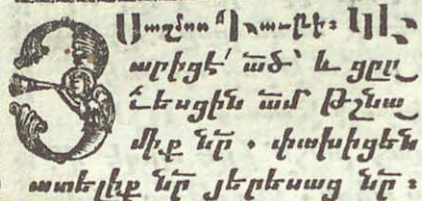 Սաղմոս Դաւթի։ ԿԷ
Յարիցէ՛ ած՛ և ցրը
ւեսցին ամ թշնա
միք նր , փախիցեն
ատելիք նր յերեսաց նր ։